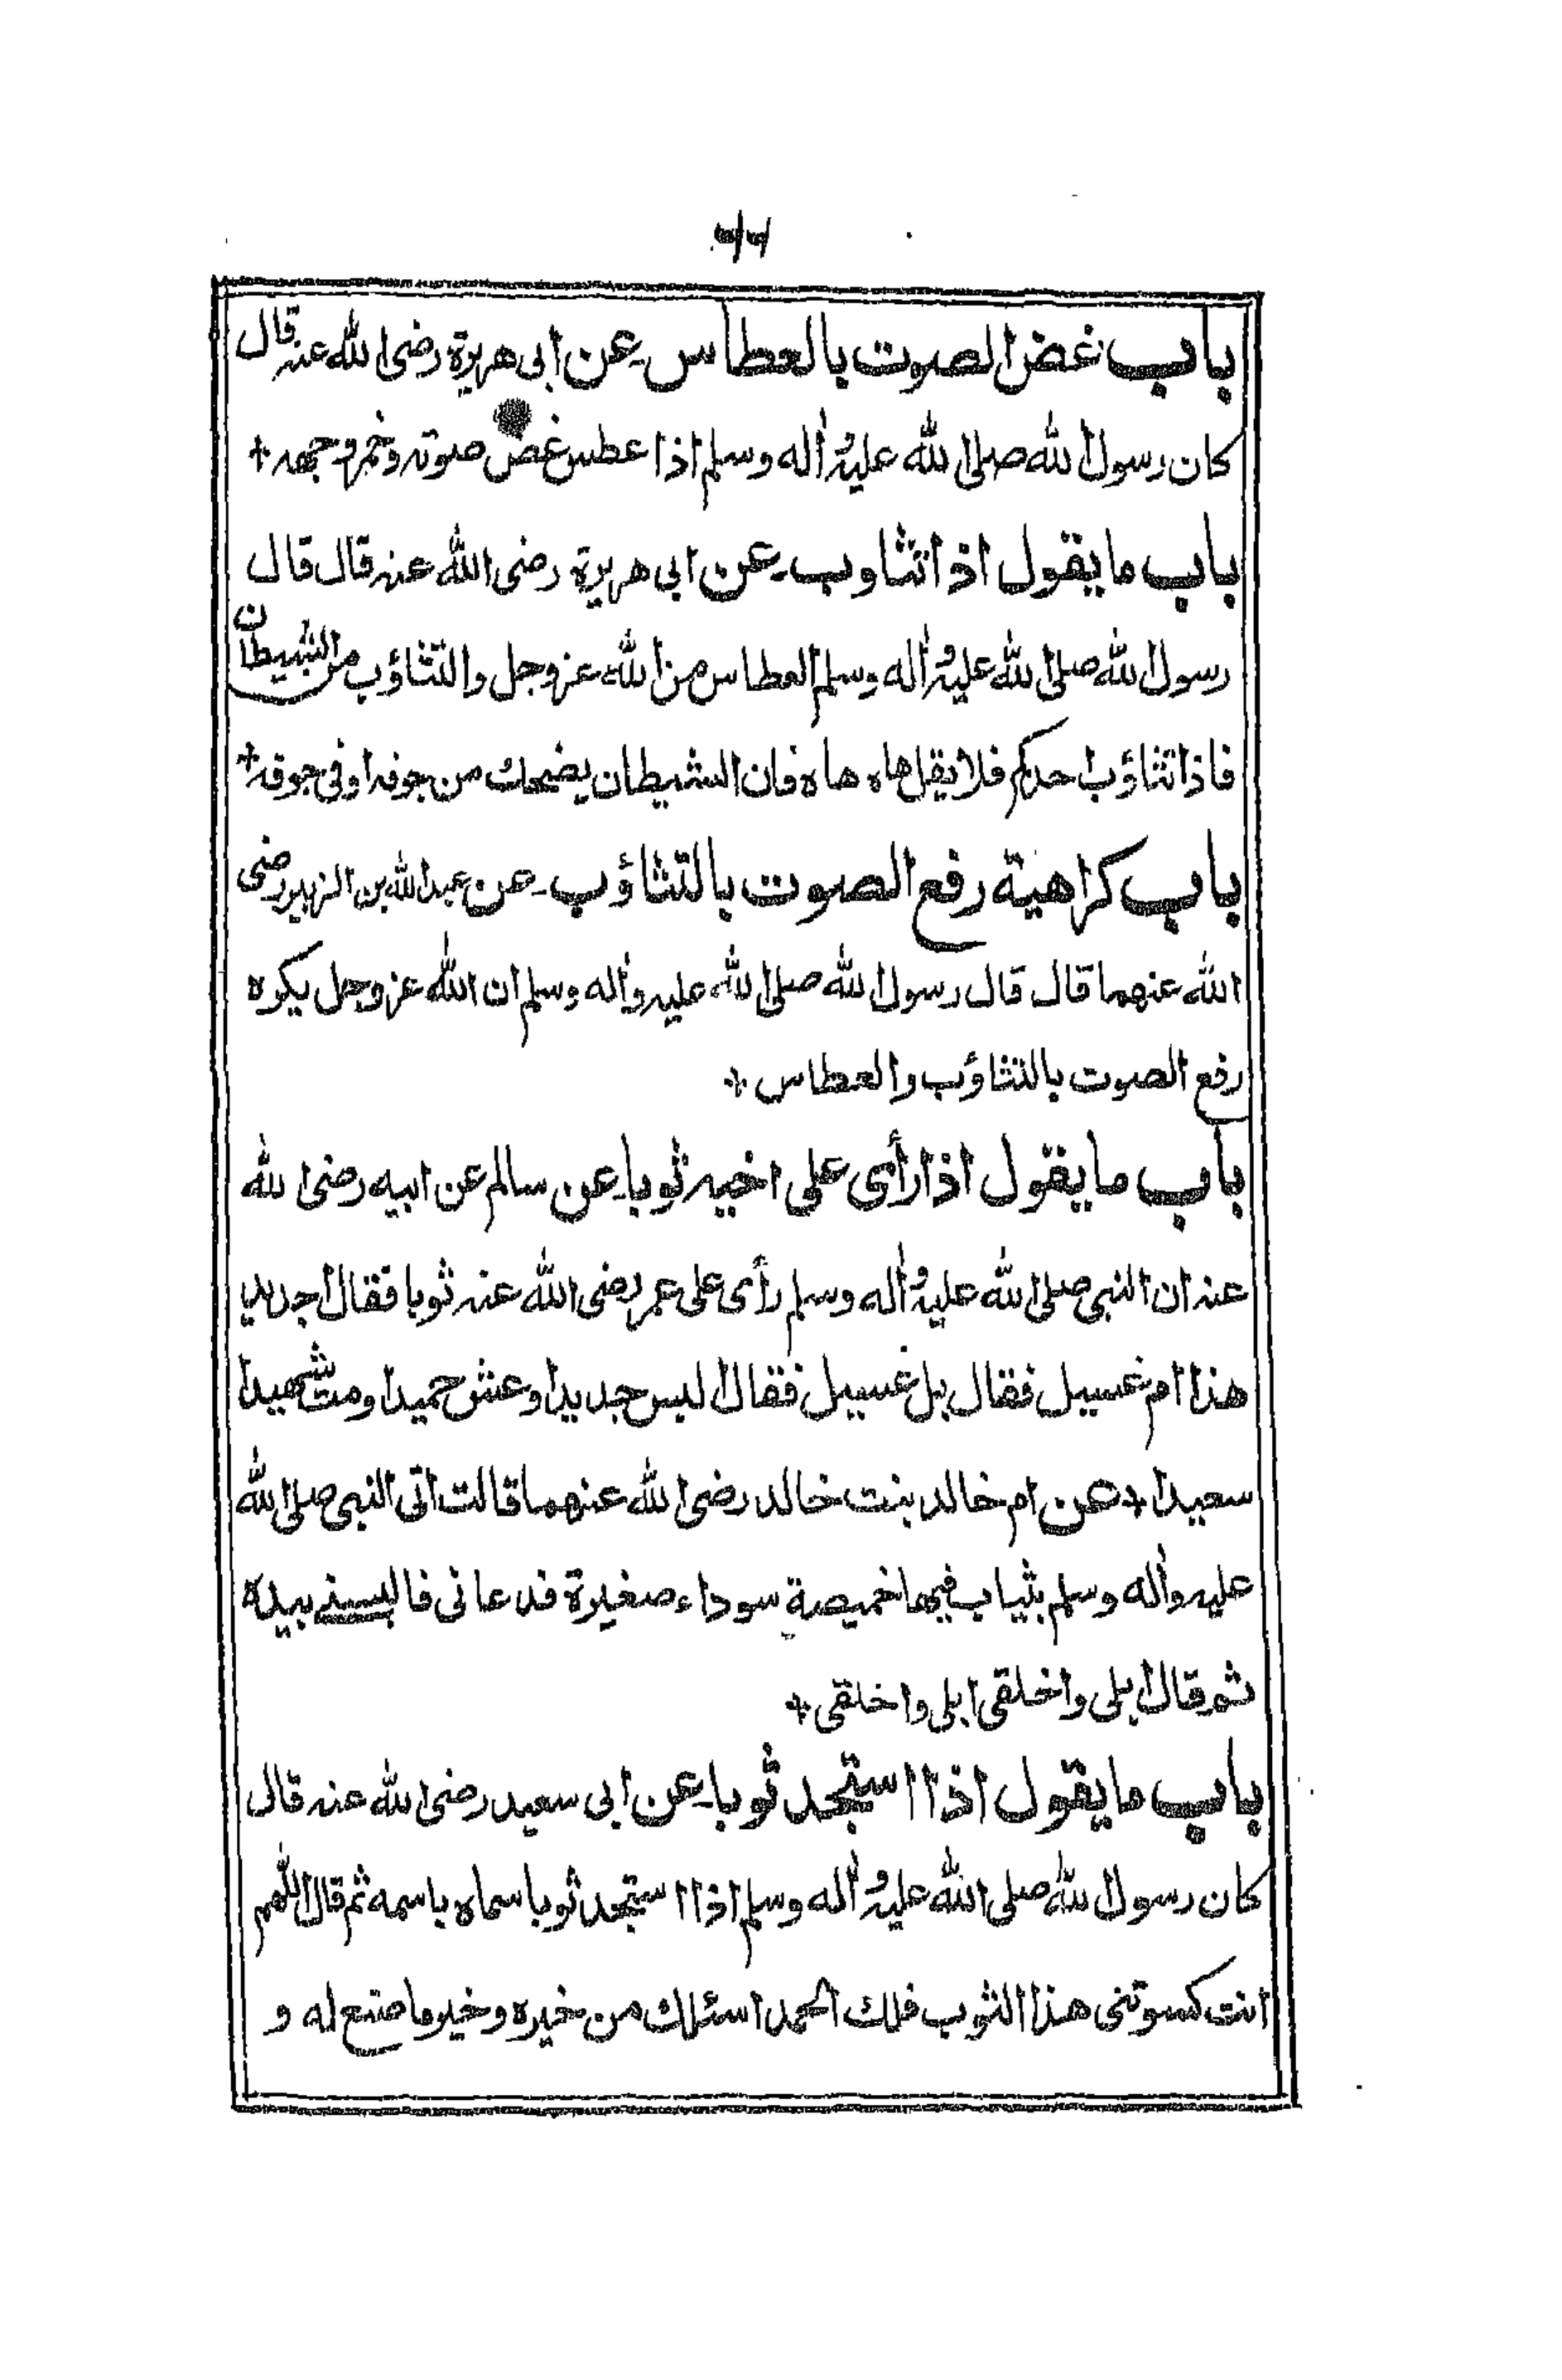 باب غض الصوت بالعطاس۔عن ابی هريرة رضی الله عنه قال
كان رسول الله صلی الله عليه واٰله وسلم اذا عطس غض صوته وخمر وجهه +
باب ما يقول اذا تثاوب۔عن ابی هريرة رضی الله عنه قال قال
رسول الله صلی الله عليه واٰله وسلم العطاس من الله عز وجل والتثاؤب من الشيطان
فاذا تثاؤب احدكم فلا يقل هاه هاه فان الشيطان يضحك من جوفه او فی جوفه +
باب كراهية رفع الصوت بالتثاؤب۔عن عبد الله بن الزبير رضی
الله عنهما قال قال رسول الله صلی الله عليه واٰله وسلم ان الله عز وجل يكره
رفع الصوت بالتثاؤب والعطاس +
باب ما يقول اذا رأى علی اخيه ثوبا۔عن سالم عن ابيه رضی الله
عنه ان النبی صلی الله عليه واٰله وسلم رأى علی عمر رضی الله عنه ثوبا فقال اجديد
هذا ام غسيل فقال بل غسيل فقال البس جديدا وعش حميدا ومت شهيدا
سعيدا + عن ام خالد بنت خالد رضی الله عنهما قالت اتی النبی صلی الله
عليه واٰله وسلم بثياب فيها خميصة سوداء صغيرة فدعانی بيده
ثم قال ابلی واخلقی ابلی واخلقی +
باب ما يقول اذا استجد ثوبا۔عن ابی سعيد رضی الله عنه قال
كان رسول الله صلی الله عليه واٰله وسلم اذا استجد ثوبا سماه باسمه ثم قال اللهم
انت كسوتنی هذا الثوب فلك الحمد اسئلك من خيره وخير ما صنع له و